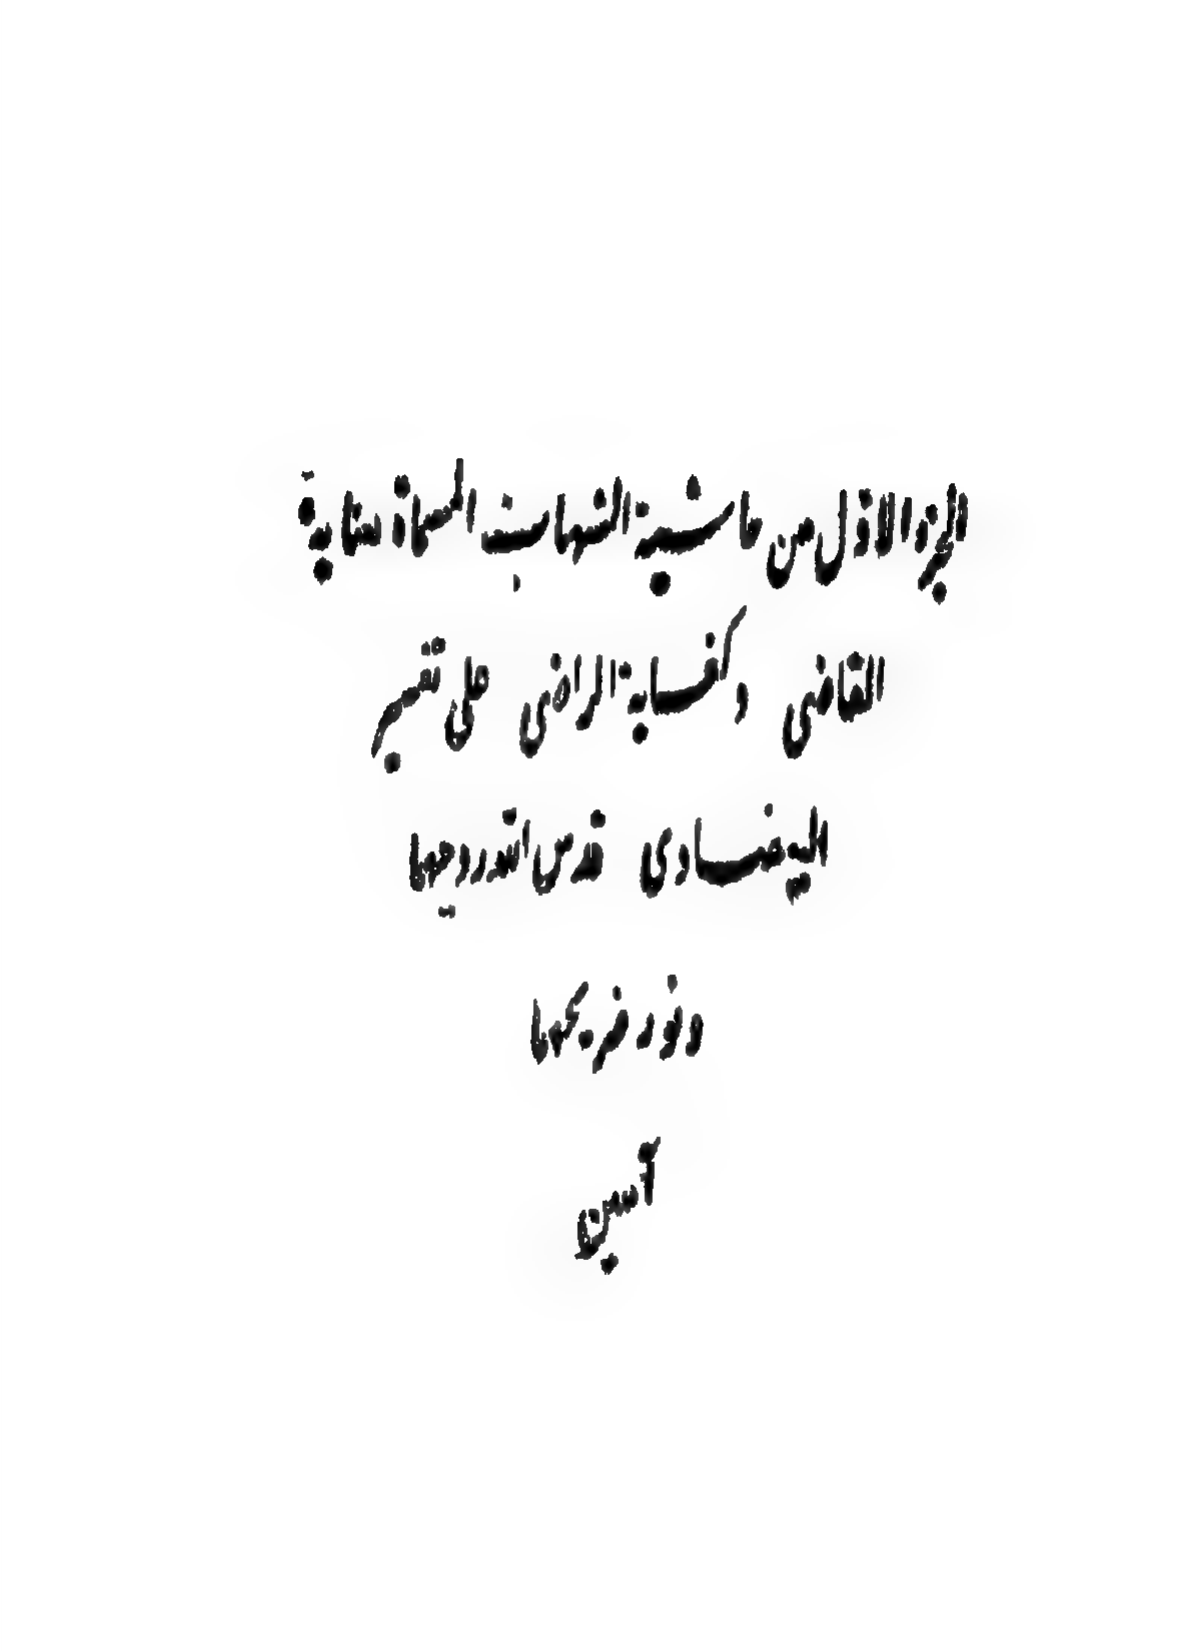 الجزء الاوّل من حاشية الشهاب المسماة عناية
القاضى وكفاية الراضى على تفسير
البيضاوى قدس الله روحيهما
ونور ضريحهما
آمين